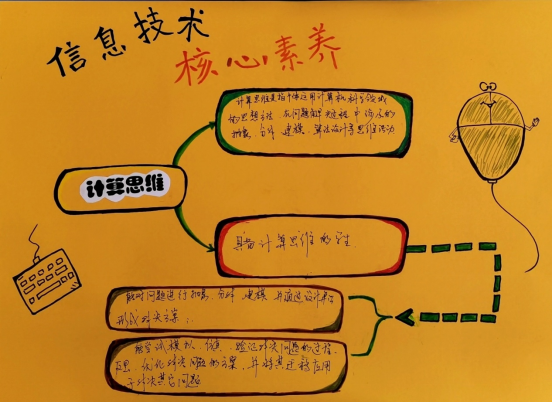 信息技术
核心素养
计算思维
计算思维是指个体运用计算机科学领域
的思想方法 在问题解决过程中涉及的
抽象、分解、建模、算法设计等思维活动
具备计算思维的学生
能对问题进行抽象、分解、建模 并通过设计算法
形成解决方案;
能尝试模拟、仿真、验证解决问题的过程,
反思、优化解决问题的方案, 并将其迁移应用
于解决其它问题